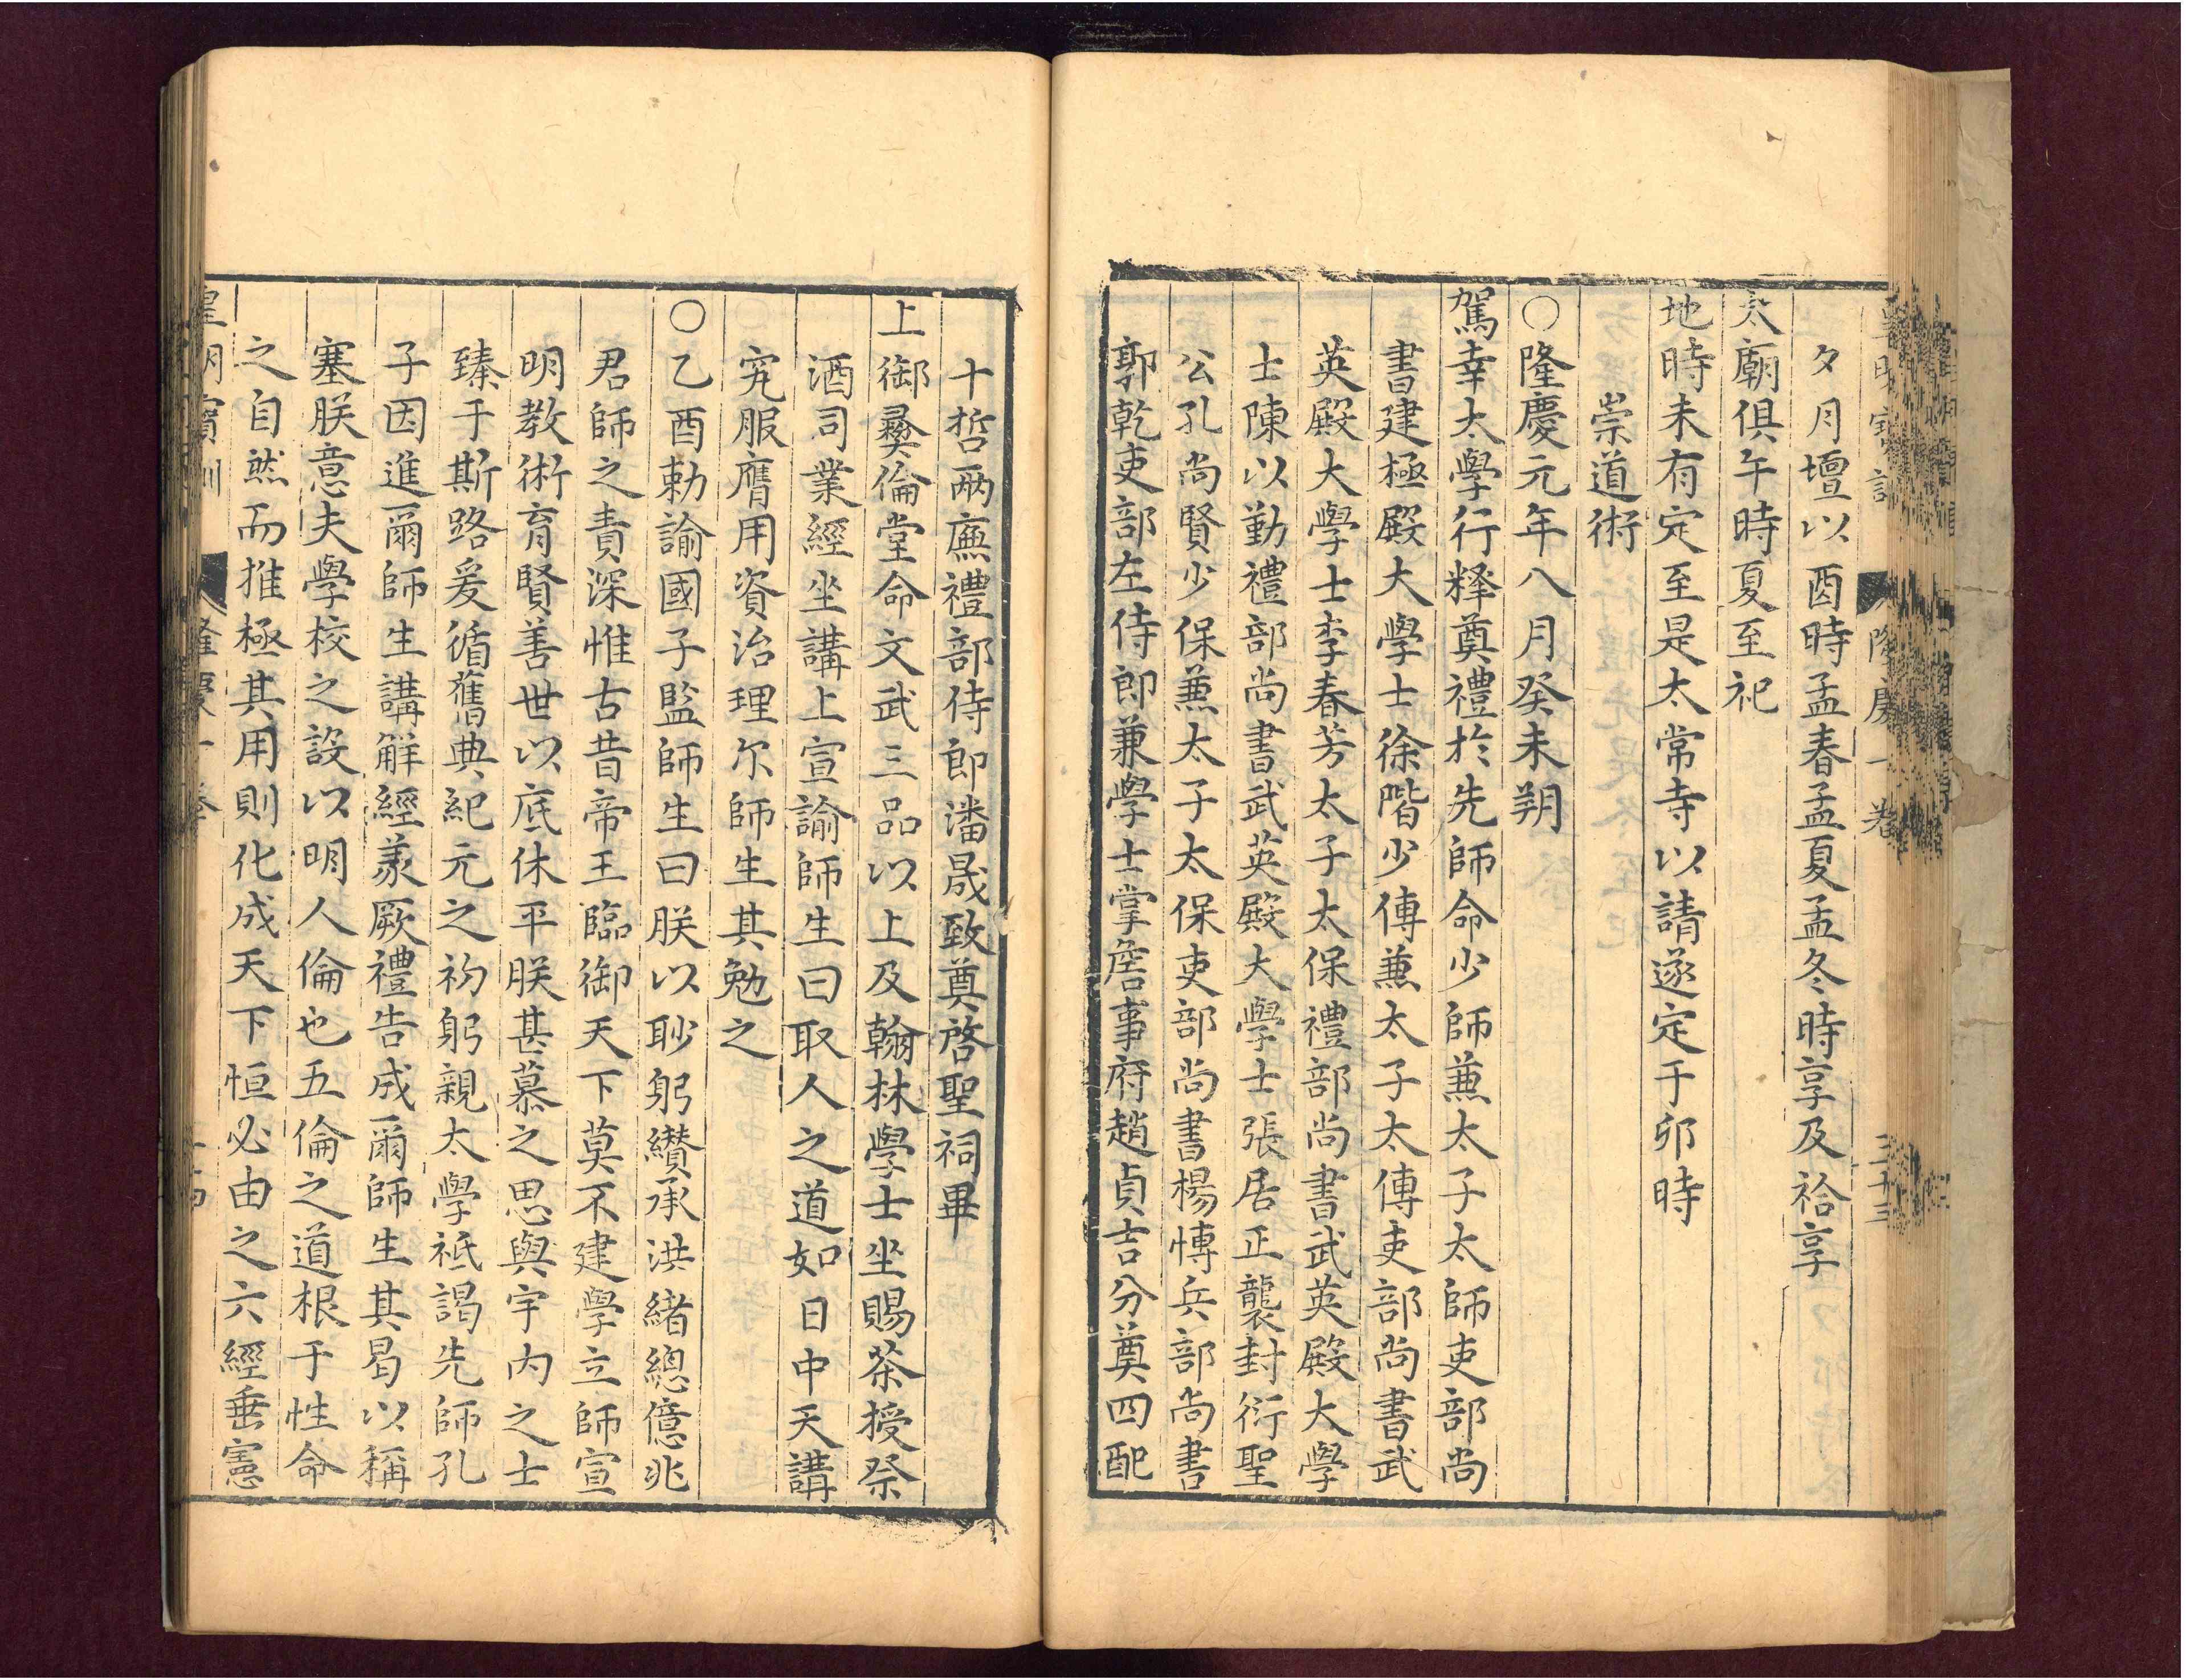 皇明寶訓 隆慶一卷 三十三
夕月壇以酉時孟春孟夏孟冬時享及祫享
太廟俱午時夏至祀
地時未有定至是太常寺以請遂定于卯時
崇道術
○隆慶元年八月癸未朔
駕幸太學行釋奠禮於先師命少師兼太子太師吏部尚
書建極殿大學士徐階少傅兼太子太傅吏部尚書武
英殿大學士李春芳太子太保禮部尚書武英殿大學
士陳以勤禮部尚書武英殿大學士張居正襲封衍聖
公孔尚賢少保兼太子太保吏部尚書楊愽兵部尚書
郭乾吏部左侍郎兼學士掌詹事府趙貞吉分奠四配
十哲兩廡禮部侍郎潘晟致奠啓聖祠畢
上御彞倫堂命文武三品以上及翰林學士坐賜茶授祭
酒司業經坐講上宣諭師生曰取人之道如日中天講
究服膺用資治理尔師生其勉之
○乙酉勅諭國子監師生曰朕以眇躬纘承洪緒總億兆
君師之責深惟古昔帝王臨御天下莫不建學立師宣
明教術育賢善世以底休平朕甚慕之思與宇内之士
臻于斯路爰循舊典紀元之初躬親太學祗謁先師孔
子因進爾師生講解經義厥禮告成爾師生其曷以稱
塞朕意夫學校之設以明人倫也五倫之道根于性命
之自然而推極其用則化成天下恒必由之六經垂憲
皇明寶訓 隆慶一卷